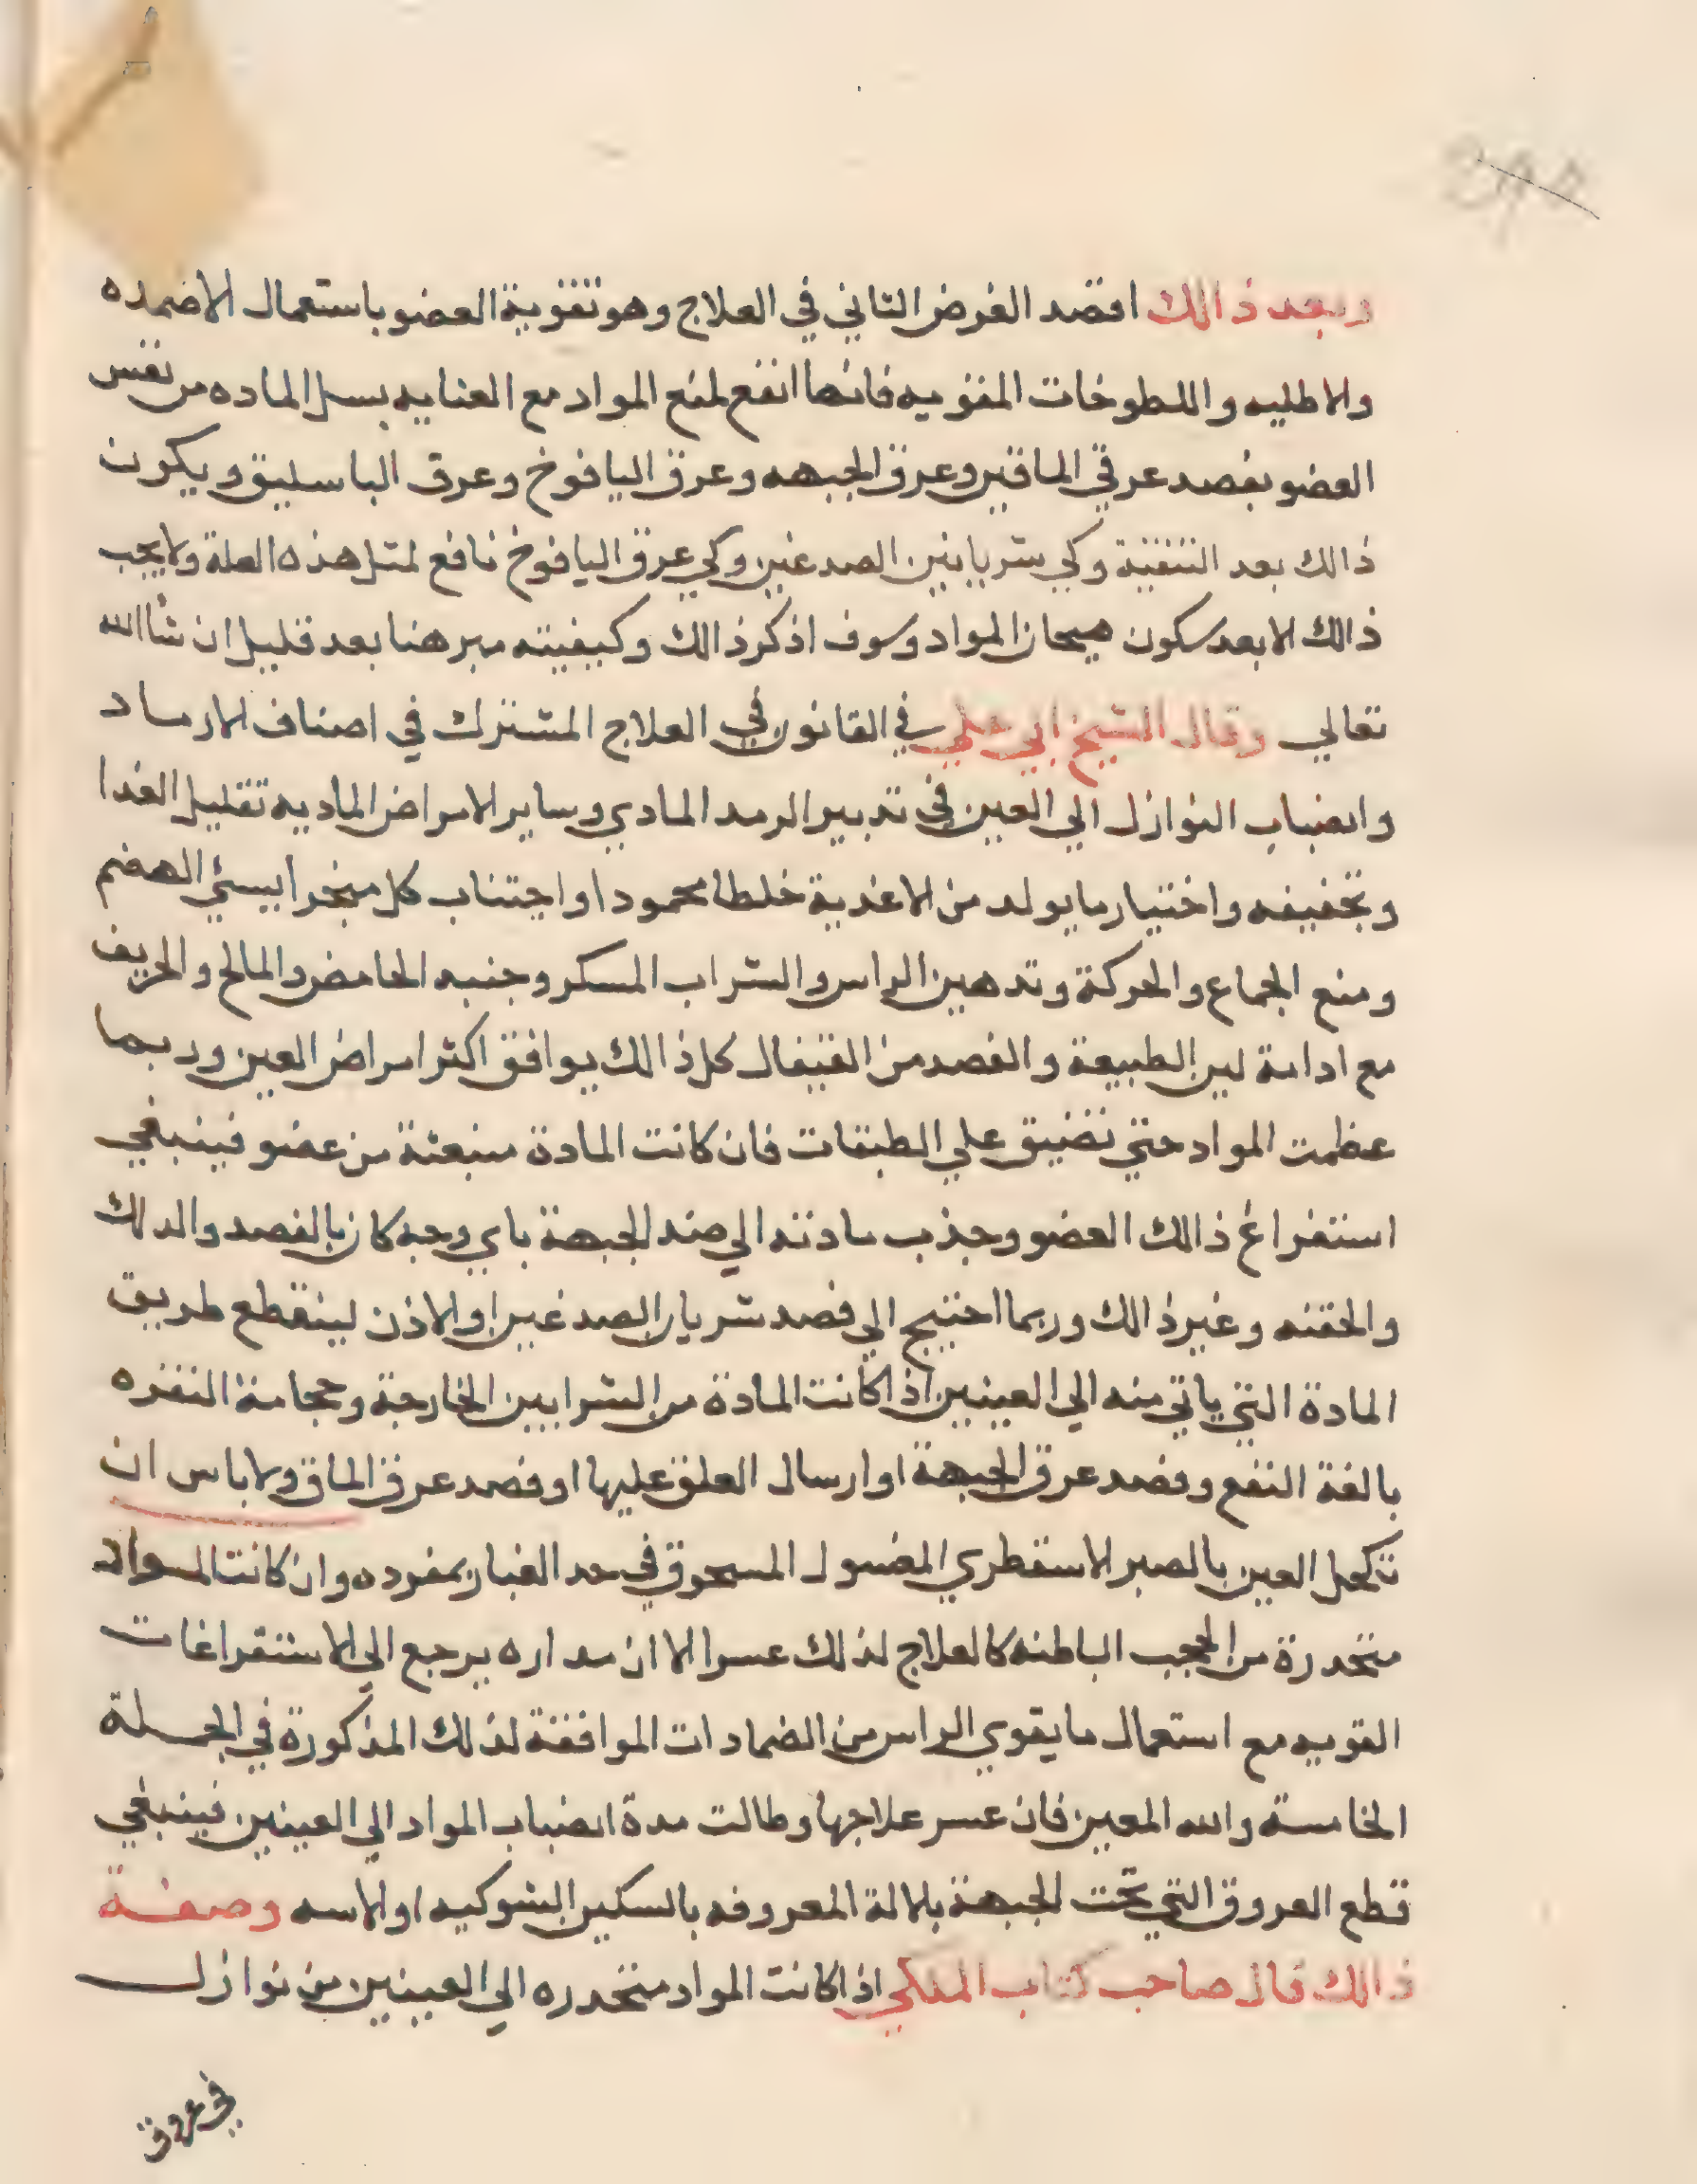 وبعد ذالك اقصد الغرض الثاني في العلاج وهو تقوية العضو باستعمال الاضمده
والاطليه واللطوخات المقويه فانها انفع لمنع المواد مع العنايه بسل الماده من نفس
العضو بفصد عرقي الماقين وعرق الجبهه وعرق اليافوخ وعرق الباسليق ويكون
ذالك بعد التنقية وكي شريانين الصدغين وكي عرق اليافوخ نافع لمثل هذه العلة ولا يجب
ذالك الا بعد سكون هيجان المواد وسوف اذكر ذالك وكيفيته مبرهنا بعد قليل ان شاالله
تعالي وقال الشيخ ابي علي في القانون في العلاج المشترك في اصناف الارماد
وانصباب النوازل الي العين في تدبير الرمد المادي وساير الامراض الماديه تقليل الغدا
وتخفيفه واختيار ما يولد من الاغدية خلطا محمودا واجتناب كل مبخر ابيسئ الهضم
ومنع الجماع والحركة وتدهين الراس والشراب المسكر وجنبه الحامض والمالح والحريف
مع ادامة لين الطبيعة والفصد من القيفال كل ذالك يوافق اكثر امراض العين وربما
عظمت المواد حتي تضيق علي الطبقات فان كانت المادة منبعثة من عضو فينبغي
استفراغ ذالك العضو وجذب مادته الي ضد الجبهة باي وجه كان بالفصد والدلك
والحقنه وغير ذالك وربما احتيج الي فصد شريان الصدغين او الاذن لينقطع طريق
المادة التي ياتي منه الي العينين اذا كانت المادة من الشرايين الخارجة وحجامة النقره
بالغة النفع وفصد عرق الجبهة او ارسال العلق عليها او فصد عرق الماق ولا باس ان
تكحل العين بالصبر الاسقطري المغسول المسحوق في حد الغبار بمفرده وان كانت المواد
منحدرة من الحجب الباطنه كالعلاج لذلك عسرا الا ان مداره يرجع الي الاستفراغات
القويه مع استعمال ما يقوي الراس من الضمادات الموافقة لذلك المذكورة في الجملة
الخامسة والله المعين فان عسر علاجها وطالت مدة انصباب المواد الي العينين فينبغي
قطع العروق التي تحت الجبهة بلالة المعروفه بالسكين الشوكيه او الاسه وصفة
ذالك قال صاحب كتاب الملكي اذا كانت المواد منحدره الي العينين من نوازل
في عروق